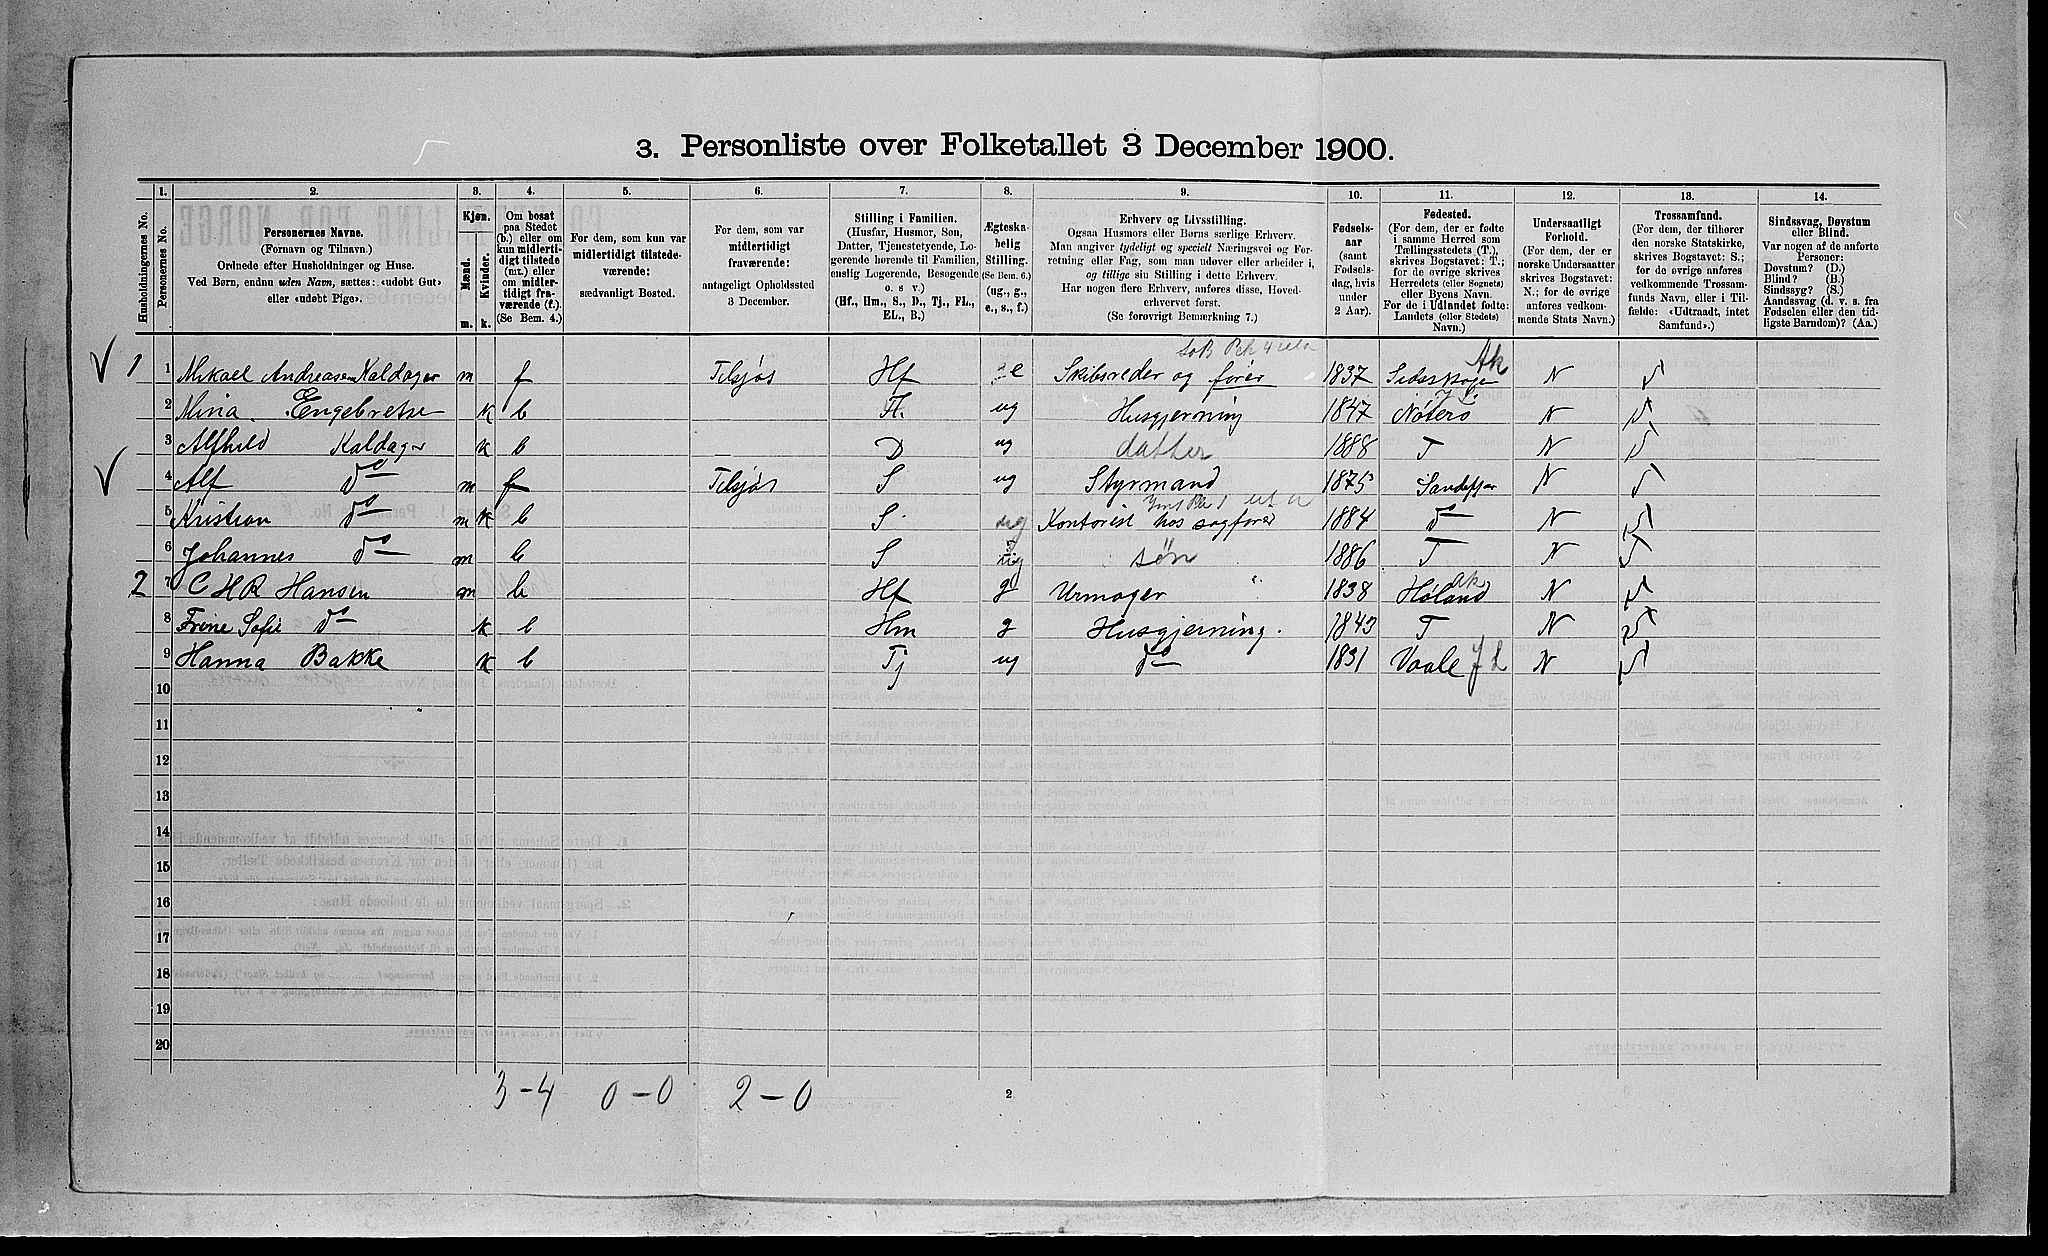 3. Personliste over Folketallet 3 December 1900.
1. 2. 3. 4. 5. 6. 7. 8. 9. 10. 11. 12. 13. 14.
Husholdningernes No.
Personernes No.
Personernes Navne.
(Fornavn og Tilnavn.)
Ordnede efter Husholdninger og Huse.
Ved Børn, endnu uden Navn, sættes: «udøbt Gut»
eller «udøbt Pige».
Kjøn.
Mænd. Kvinder.
m. k.
Om bosat
paa Stedet
(b.) eller om
kun midlerti-
digt tilstede
(mt.) eller
om midler-
tidigt fra-
værende (f.)
(Se Bem. 4.)
For dem, som kun var
midlertidigt tilstede-
værende:
sædvanligt Bosted.
For dem, som var
midlertidigt
fraværende:
antageligt Opholdssted
3 December.
Stilling i Familien.
(Husfar, Husmor, Søn,
Datter, Tjenestetyende, Lo-
gerende hørende til Familien,
enslig Logerende, Besøgende
o. s v.)
(Hf., Hm., S., D., Tj., FL.,
EL., B.)
Ægteska-
belig
Stilling.
(Se Bem. 6.)
(ug., g.,
e., s., f.)
Erhverv og Livsstilling.
Ogsaa Husmors eller Børns særlige Erhverv.
Man angiver tydeligt og specielt Næringsvei og For-
retning eller Fag, som man udøver eller arbeider i,
og tillige sin Stilling i dette Erhverv.
Har nogen flere Erhverv, anføres disse, Hoved-
erhvervet først.
(Se forøvrigt Bemærkning 7.)
Fødsels-
aar
(samt
Fødsels-
dag, hvis
under
2 Aar).
Fødested.
(For dem, der er fødte
i samme Herred som
Tællingsstedets (T.),
skrives Bogstavet: T.;
for de øvrige skrives
Herredets (eller Sognets)
eller Byens Navn.
For de i Udlandet fødte:
Landets (eller Stedets)
Navn.)
Undersaatligt
Forhold.
(For dem, der er
norske Undersaatter
skrives Bogstavet:
N.; for de øvrige
anføres vedkom-
mende Stats Navn.)
Trossamfund.
(For dem, der tilhører
den norske Statskirke,
skrives Bogstavet: S.;
for de øvrige anføres
vedkommende Trossam-
funds Navn, eller i Til-
fælde: «Udtraadt, intet
Samfund».)
Sindssvag, Døvstum
eller Blind.
Var nogen af de anførte
Personer:
Døvstum? (D.)
Blind? (B.)
Sindssyg? (S.)
Aandssvag (d. v. s. fra
Fødselen eller den tid-
ligste Barndom)? (Aa.)
1 1 Mikael Andreasen Kaldager m f Tilsjøs Hf e Skibsreder og fører 1837 Ak N S
2 Mina Engebretse k b ug Husgjerning 1847 Nøterø N S
3 Alfhild Kaldager k b D ug datter 1888 T N S
4 Alf do m f Tilsjøs S ug Styrmand 1875 Sandefjor N S
5 Kristian do m k b S ug Kontorist hos sagfører 1884 do N S
6 Johannes do m b S ug søn 1886 T N S
2 7 C H R Hansen m b Hf g Urmager 1838 Høland Ak N S
8 Trine Sofie do k b Hm g Husgjerning. 1843 T N S
9 Hanna Bakke k b Tj ug do 1831 Vaale J L N S
10
11
12
13
14
15
16
17
18
19
20
3 - 4 0 - 0 2 - 0
2